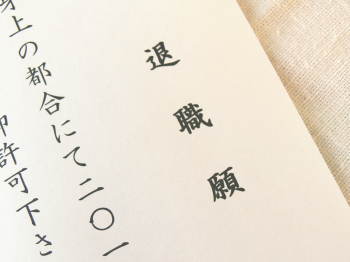 退職願
身上の都合にて二〇一
許可下さ